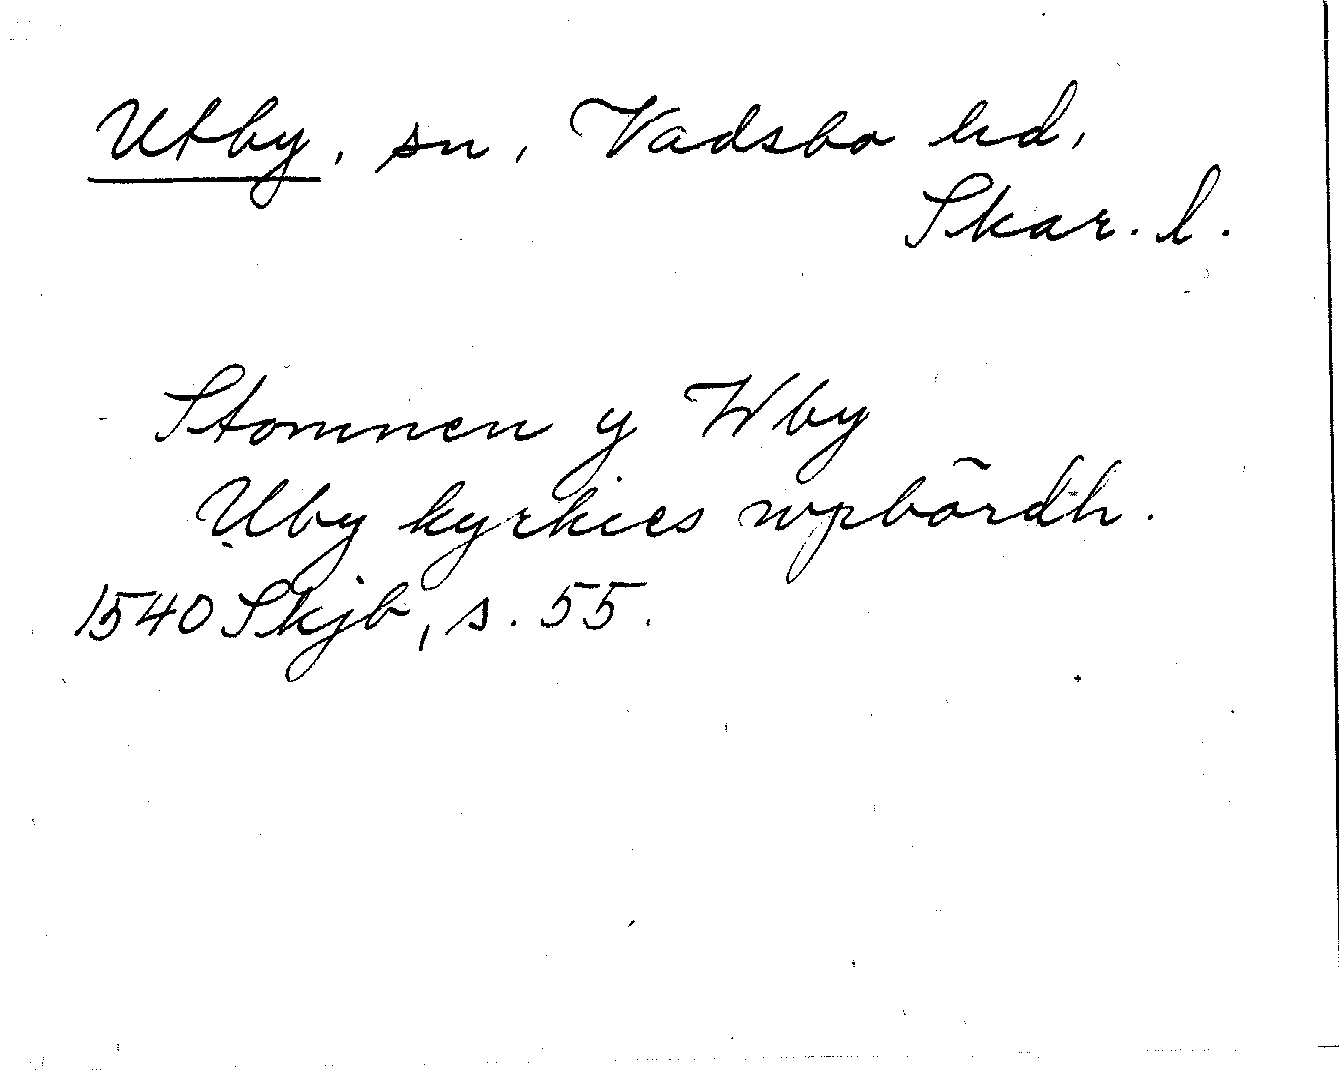 Utby, sn, Vadsbo hd,
Skar. l.
Stomnen y Wby
Uby kyrkies wpbördh.
1540 Skjb, s. 55.